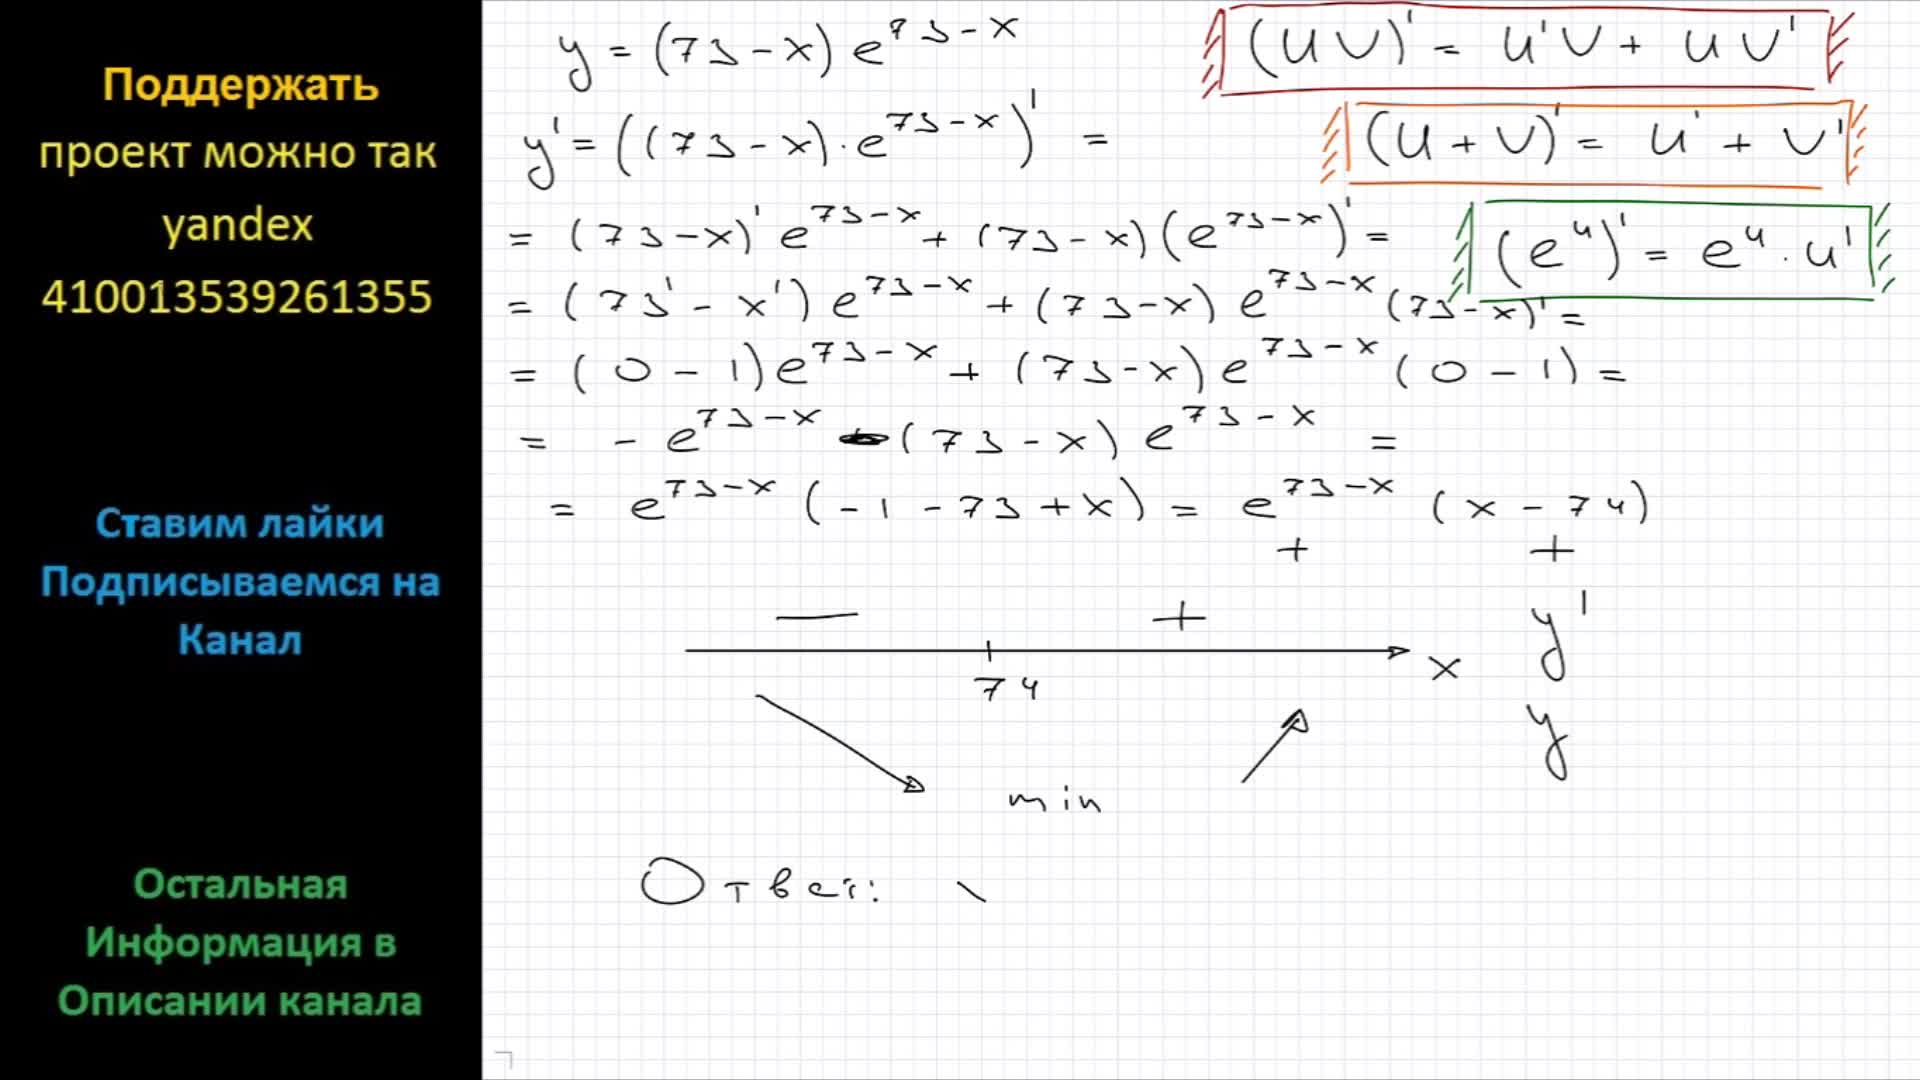 Поддержать
проект можно так
yandex
410013539261355
Ставим лайки
Подписываемся на
Канал
Остальная
Информация в
Описании канала
y = (73-x) e^{73-x}
y' = ((73-x)·e^{73-x})' =
= (73-x)' e^{73-x} + (73-x)(e^{73-x})' =
= (73' - x') e^{73-x} + (73-x) e^{73-x} (73-x)' =
= (0 - 1) e^{73-x} + (73-x) e^{73-x} (0 - 1) =
= - e^{73-x} - (73-x) e^{73-x} =
= e^{73-x} (-1 - 73 + x) = e^{73-x} (x - 74)
+ +
(uv)' = u'v + uv'
(u + v)' = u' + v'
(e^u)' = e^u · u'
— + y'
74 x
y
min
Ответ: